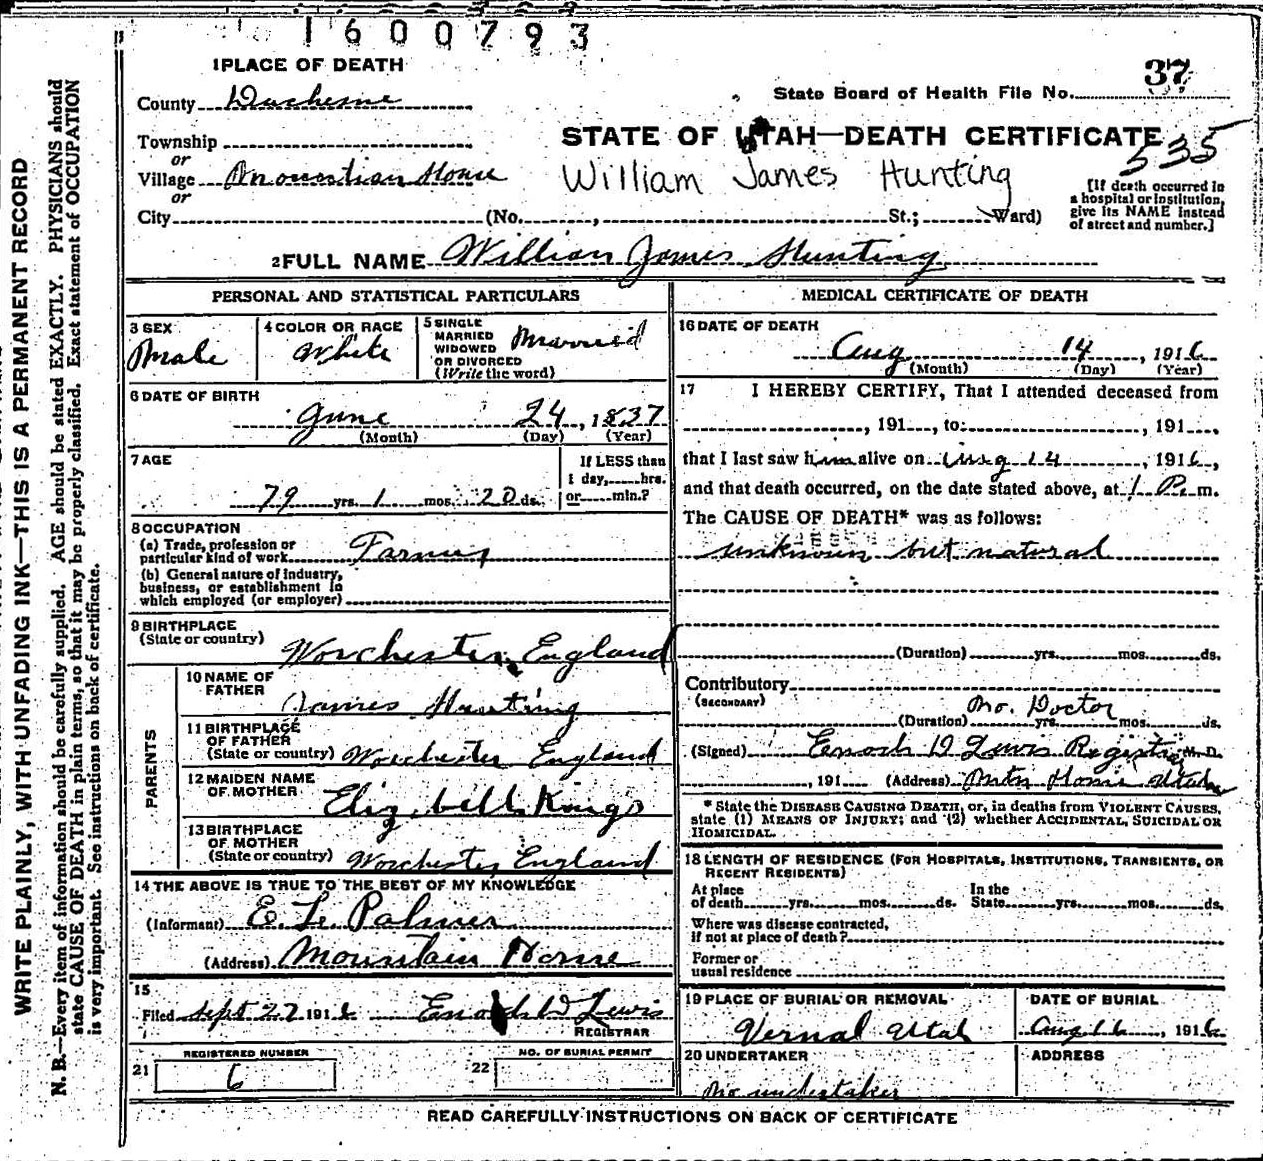 1600793
1 PLACE OF DEATH
37
County Duchesne
State Board of Health File No.
Township
STATE OF UTAH—DEATH CERTIFICATE
535
or
Village Mountian Home
William James Hunting
or
City (No. , St.; Ward)
[If death occurred in
a hospital or institution,
give its NAME instead
of street and number.]
2 FULL NAME William James Hunting
PERSONAL AND STATISTICAL PARTICULARS
3 SEX
Male
4 COLOR OR RACE
White
5 SINGLE
MARRIED
WIDOWED
OR DIVORCED
(Write the word)
Married
6 DATE OF BIRTH
June 24, 1837
(Month) (Day) (Year)
7 AGE
79 yrs. 1 mos. 20 ds.
If LESS than
1 day, hrs.
or min.?
8 OCCUPATION
(a) Trade, profession or
particular kind of work Farmer
(b) General nature of industry,
business, or establishment in
which employed (or employer)
9 BIRTHPLACE
(State or country) Worchester, England
PARENTS
10 NAME OF
FATHER
James Hunting
11 BIRTHPLACE
OF FATHER
(State or country) Worchester England
12 MAIDEN NAME
OF MOTHER Kings
13 BIRTHPLACE
OF MOTHER
(State or country) Worchester, England
14 THE ABOVE IS TRUE TO THE BEST OF MY KNOWLEDGE
(Informant) E. L. Palmer
(Address) Mountain Home
15
Filed Sept 27 1916 Enoch D Lewis
REGISTRAR
REGISTERED NUMBER
21 6
NO. OF BURIAL PERMIT
22
MEDICAL CERTIFICATE OF DEATH
16 DATE OF DEATH
Aug 14, 1916
(Month) (Day) (Year)
17 I HEREBY CERTIFY, That I attended deceased from
, 191 , to , 191 ,
that I last saw him alive on Aug 14, 1916,
and that death occurred, on the date stated above, at 1 P. m.
The CAUSE OF DEATH* was as follows:
unknown but natural
(Duration) yrs. mos. ds.
Contributory
(SECONDARY)
No. Doctor
(Duration) yrs. mos. ds.
(Signed) Enoch D Lewis Registrar M. D.
, 191 (Address) Mtn Home Utah
* State the DISEASE CAUSING DEATH, or, in deaths from VIOLENT CAUSES,
state (1) MEANS OF INJURY; and (2) whether ACCIDENTAL, SUICIDAL OR
HOMICIDAL.
18 LENGTH OF RESIDENCE (FOR HOSPITALS, INSTITUTIONS, TRANSIENTS, OR
RECENT RESIDENTS)
At place
of death yrs. mos. ds.
In the
State yrs. mos. ds.
Where was disease contracted,
if not at place of death?
Former or
usual residence
19 PLACE OF BURIAL OR REMOVAL
Vernal Utah
DATE OF BURIAL
Aug 16, 1916
20 UNDERTAKER
No undertaker
ADDRESS
READ CAREFULLY INSTRUCTIONS ON BACK OF CERTIFICATE
WRITE PLAINLY, WITH UNFADING INK—THIS IS A PERMANENT RECORD
N. B.—Every item of information should be carefully supplied. AGE should be stated EXACTLY. PHYSICIANS should
state CAUSE OF DEATH in plain terms, so that it may be properly classified. Exact statement of OCCUPATION
is very important. See instructions on back of certificate.